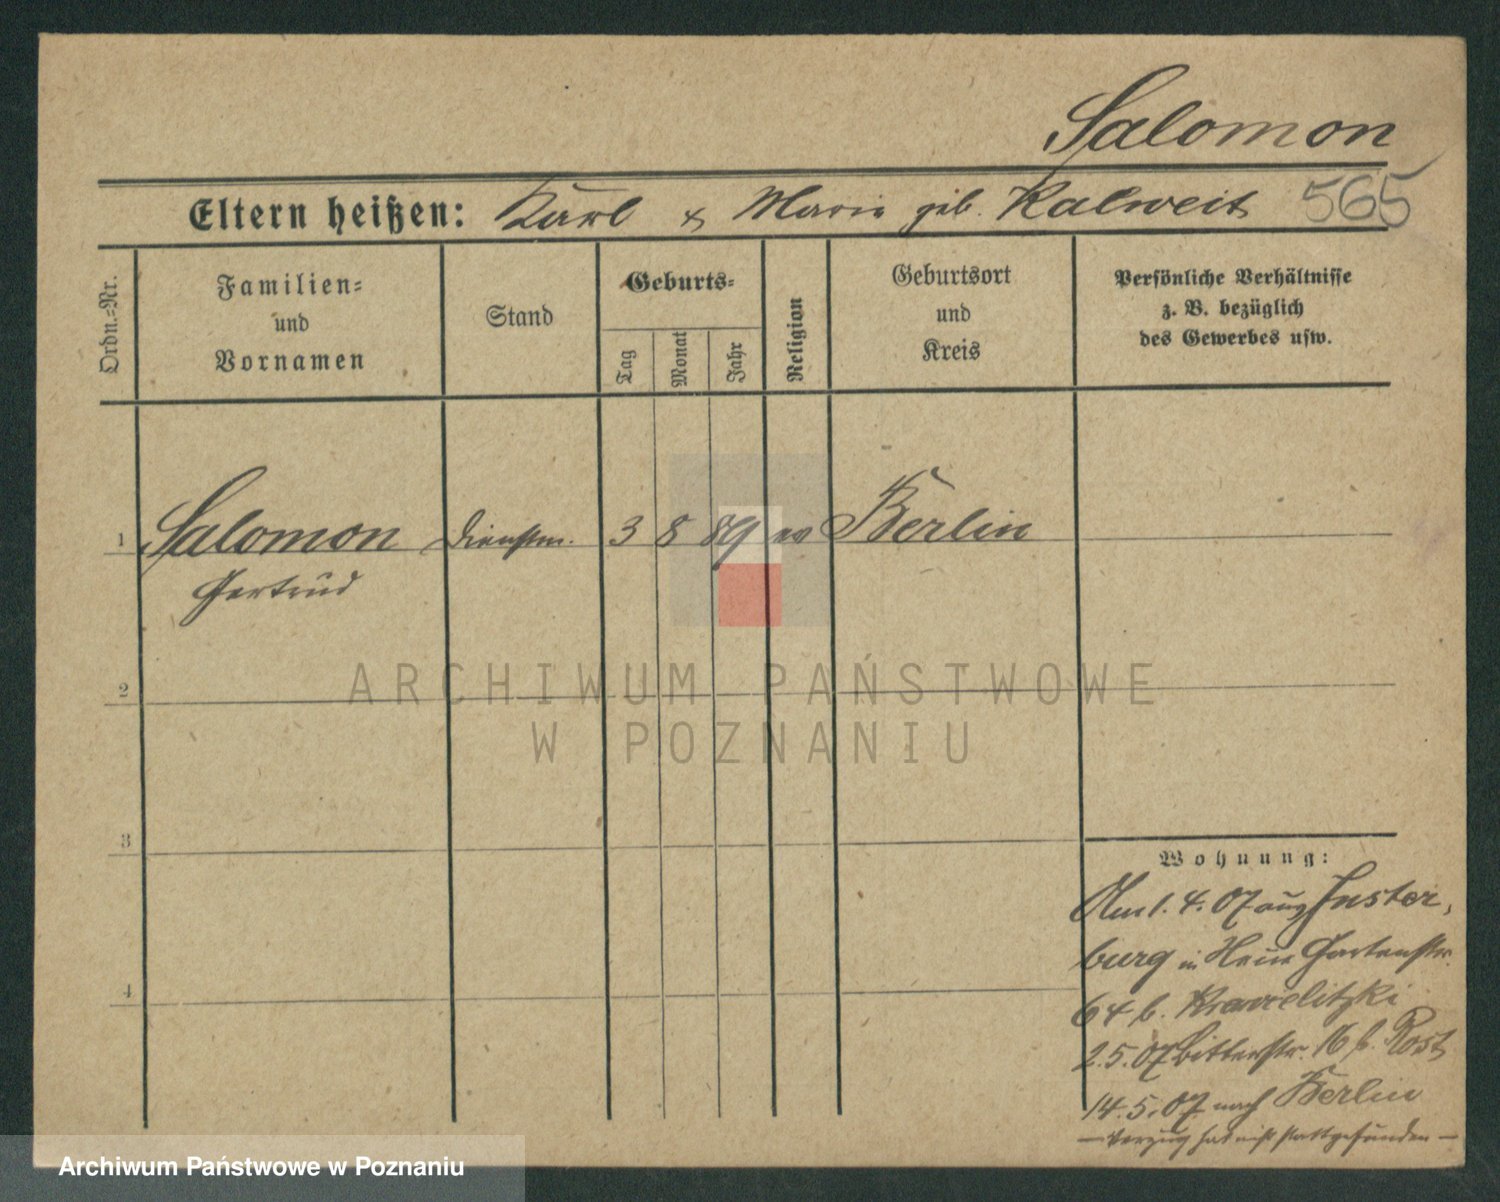 Salomon
Eltern heißen: Karl & Marie geb. Kalweit 565
Ordn.=Nr.
Familien=
und
Vornamen
Stand
Geburts=
Tag
Monat
Jahr
Religion
Geburtsort
und
Kreis
Persönliche Verhältnisse
z. B. bezüglich
des Gewerbes usw.
1 Salomon Dienstm. 3 8 89 ev Berlin
Gertrud
2
ARCHIWUM PAŃSTWOWE
W POZNANIU
3
4
Wohnung:
Am 1. 4. 07 aus Inster,
burg in Neue Gartenstr.
64 b.
2.5.07 Ritterstr. 16 b. Rost
14.5.07 nach Berlin
— Verzug hat nicht stattgefunden —
Archiwum Państwowe w Poznaniu